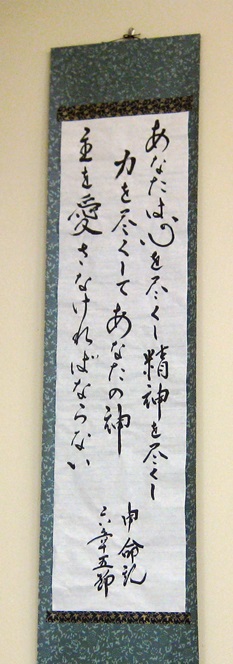 あなたは心を尽くし精神を尽くし
力を尽くしてあなたの神
主を愛さなければならない
申命記
六章五節